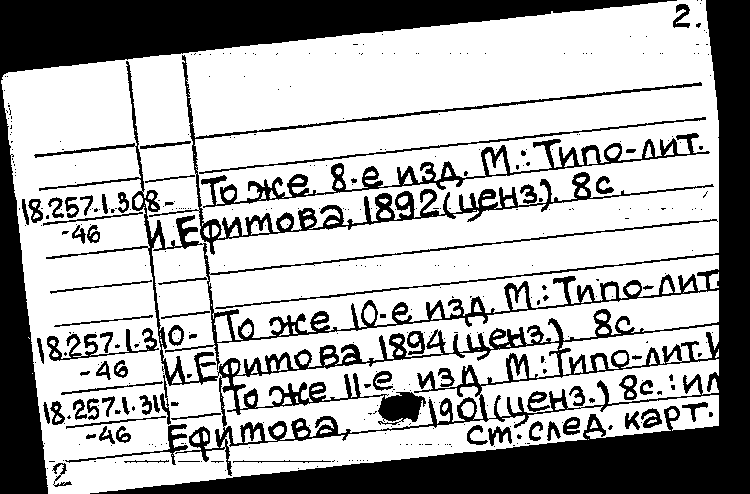 2.
18.257.1.308- То же. 8-е изд. М.: Типо-лит.
-46 И. Ефимова, 1892 (ценз.). 8с.
18.257.1.310- То же. 10-е изд. М.: Типо-лит.
-46 И. Ефимова, 1894 (ценз.). 8с.
18.257.1.311- То же. 11-е изд. М.: Типо-лит. И
-46 Ефимова, 1901 (ценз.) 8с.: ил
ст. след. карт.
2